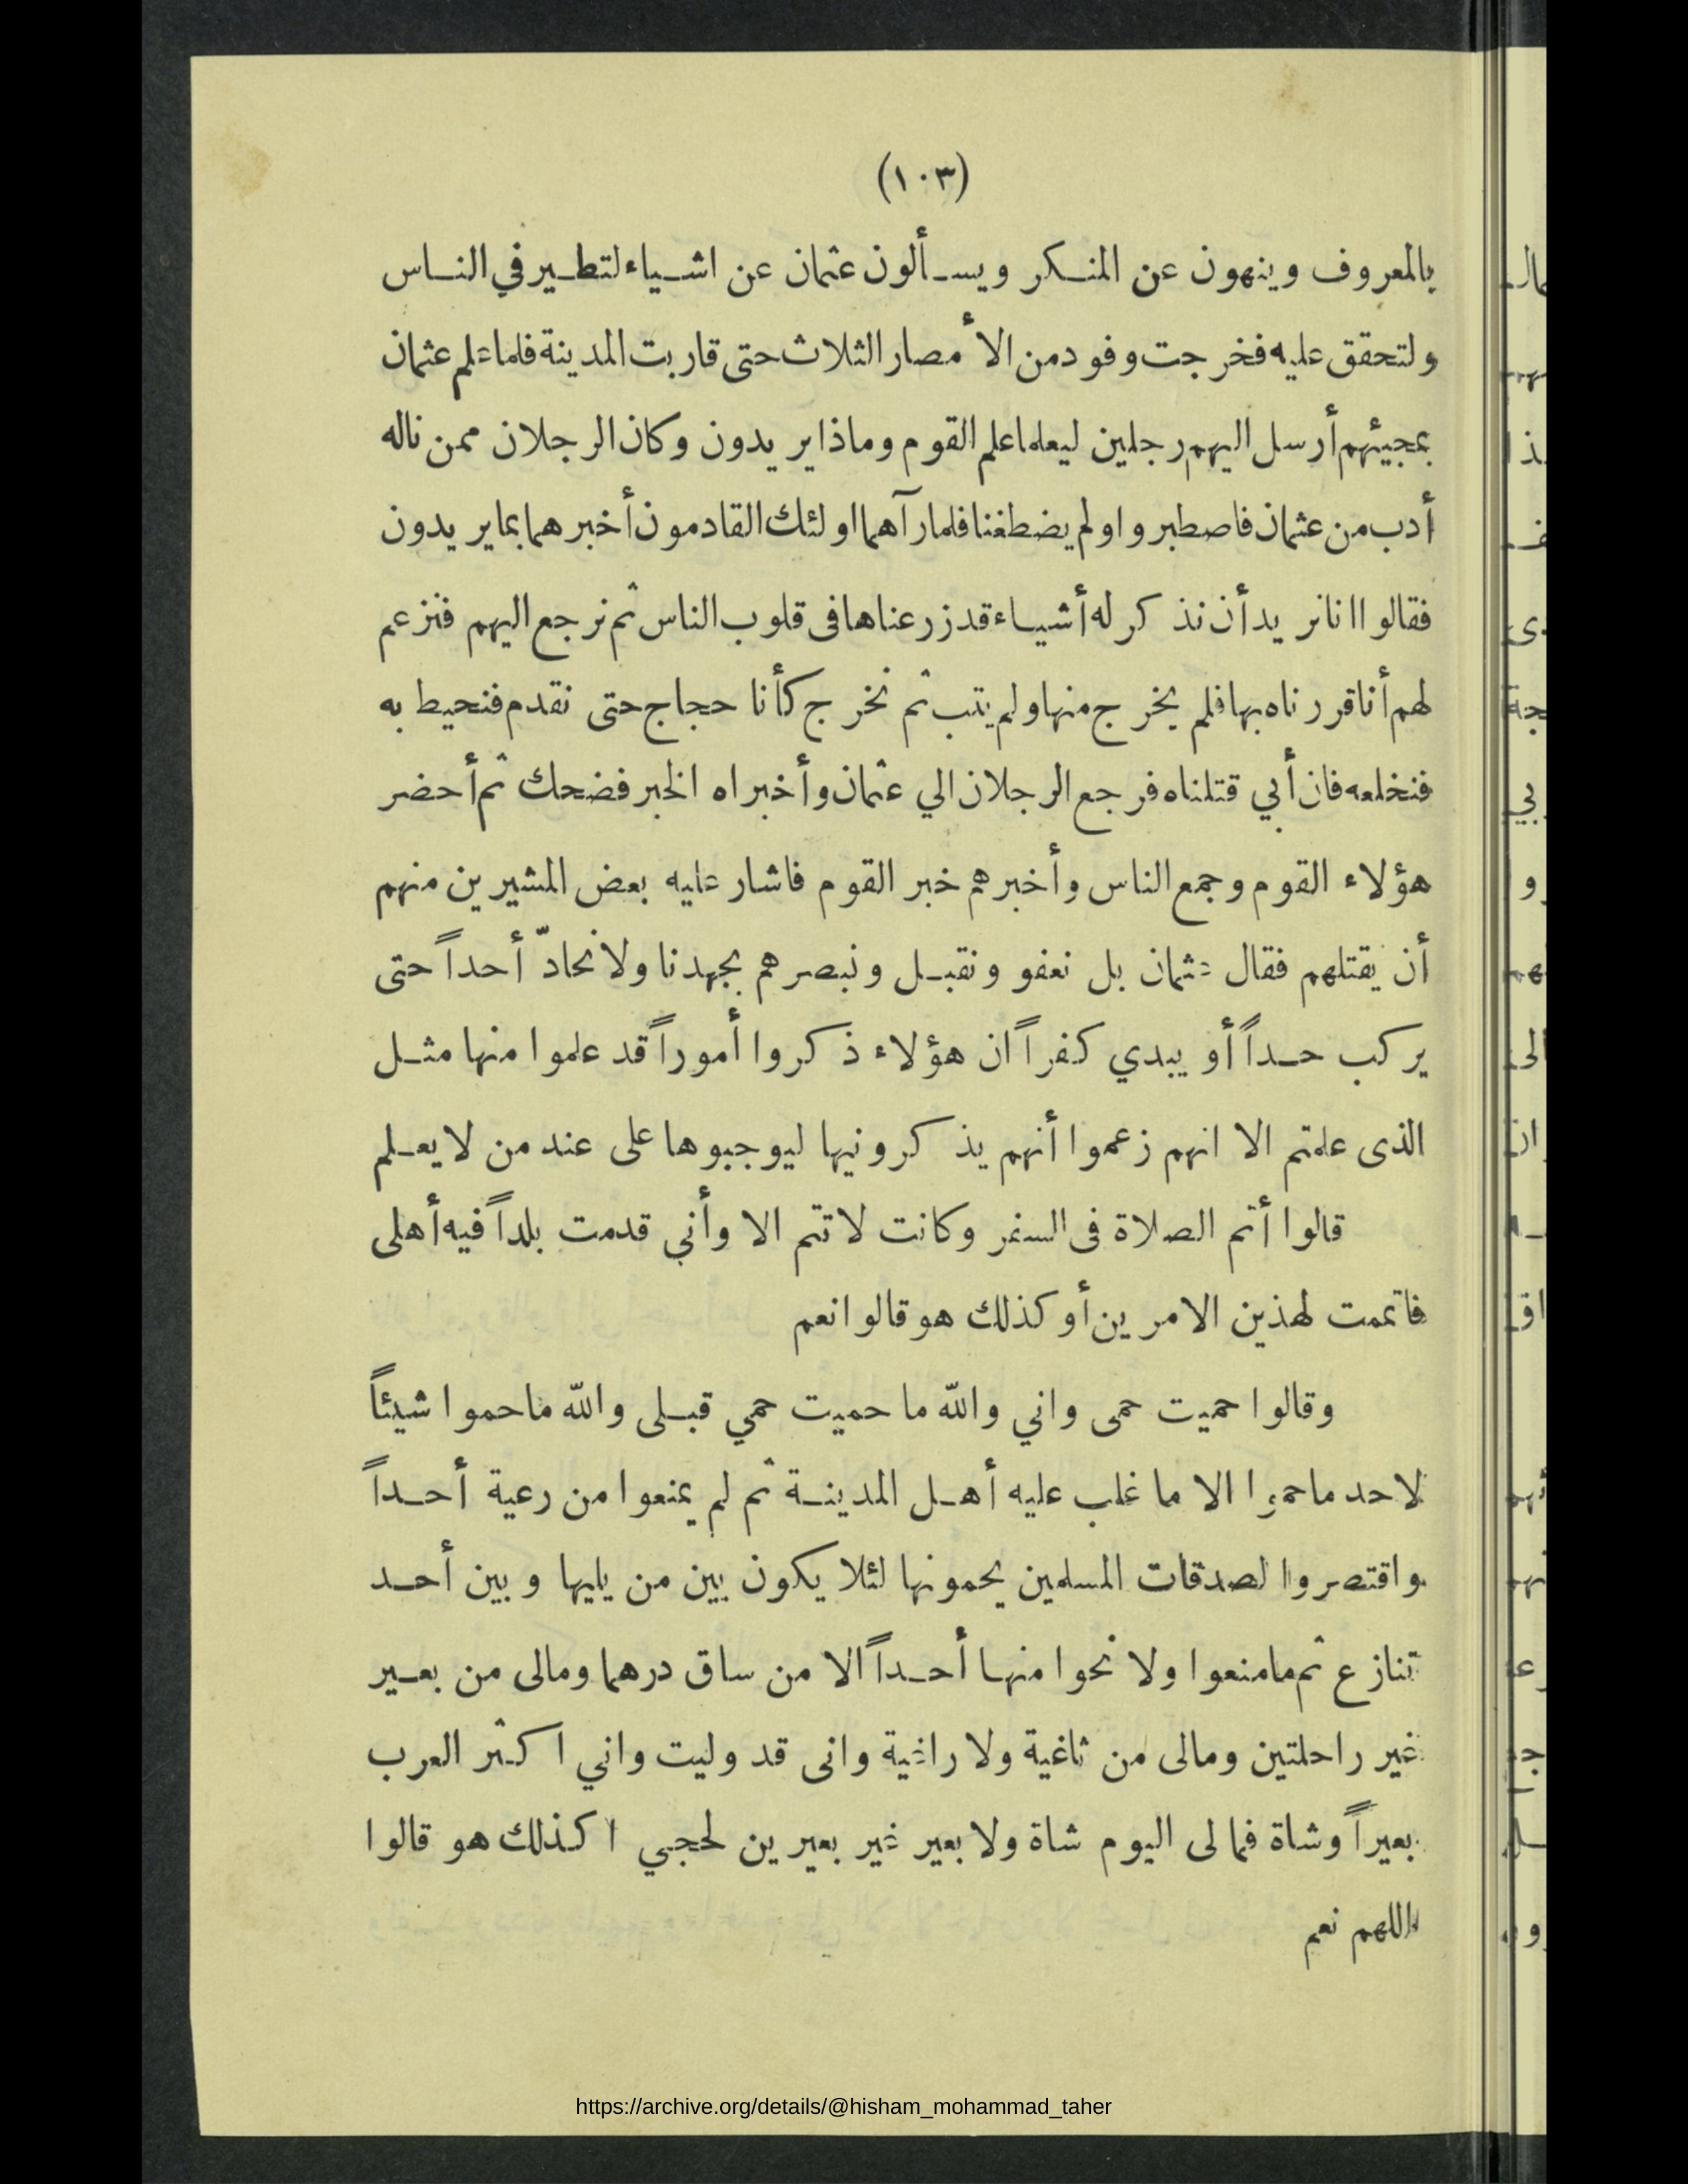 (١٠٣)
بالمعروف وينهون عن المنكر ويسألون عثمان عن اشياء لتطير في الناس
ولتحقق عليه فخرجت وفود من الأمصار الثلاث حتى قاربت المدينة فلما علم عثمان
بمجيئهم أرسل اليهم رجلين ليعلما علم القوم وماذا يريدون وكان الرجلان ممن ناله
أدب من عثمان فاصطبروا ولم يضطغنا فلما رآهما اولئك القادمون أخبرهما بما يريدون
فقالوا انا نريد أن نذكر له أشياء قد زرعناها فى قلوب الناس ثم نرجع اليهم فنزعم
لهم أنا قررناه بها فلم يخرج منها ولم يتب ثم نخرج كأنا حجاج حتى نقدم فنحيط به
فنخلعه فان أبي قتلناه فرجع الرجلان الي عثمان وأخبراه الخبر فضحك ثم أحضر
هؤلاء القوم وجمع الناس وأخبرهم خبر القوم فاشار عليه بعض المشيرين منهم
أن يقتلهم فقال عثمان بل نعفو ونقبل ونبصرهم بجهدنا ولا نحادّ أحداً حتى
يركب حداً أو يبدي كفراً ان هؤلاء ذكروا أموراً قد علموا منها مثل
الذى علمتم الا انهم زعموا أنهم يذكرونيها ليوجبوها على عند من لا يعلم
قالوا أتم الصلاة فى السفر وكانت لا تتم الا وأني قدمت بلداً فيه أهلى
فاتممت لهذين الامرين أو كذلك هو قالوا نعم
وقالوا حميت حمى واني والله ما حميت حمي قبلى والله ما حموا شيئاً
لاحد ما حموا الا ما غلب عليه أهل المدينة ثم لم يمنعوا من رعية أحداً
واقتصروا لصدقات المسلمين يحمونها لئلا يكون بين من يليها وبين أحد
تنازع ثم ما منعوا ولا نحوا منها أحداً الا من ساق درهما ومالى من بعير
غير راحلتين ومالى من ثاغية ولا راغية وانى قد وليت واني اكثر العرب
بعيراً وشاة فمالى اليوم شاة ولا بعير غير بعيرين لحجي اكذلك هو قالوا
اللهم نعم
https://archive.org/details/@hisham_mohammad_taher